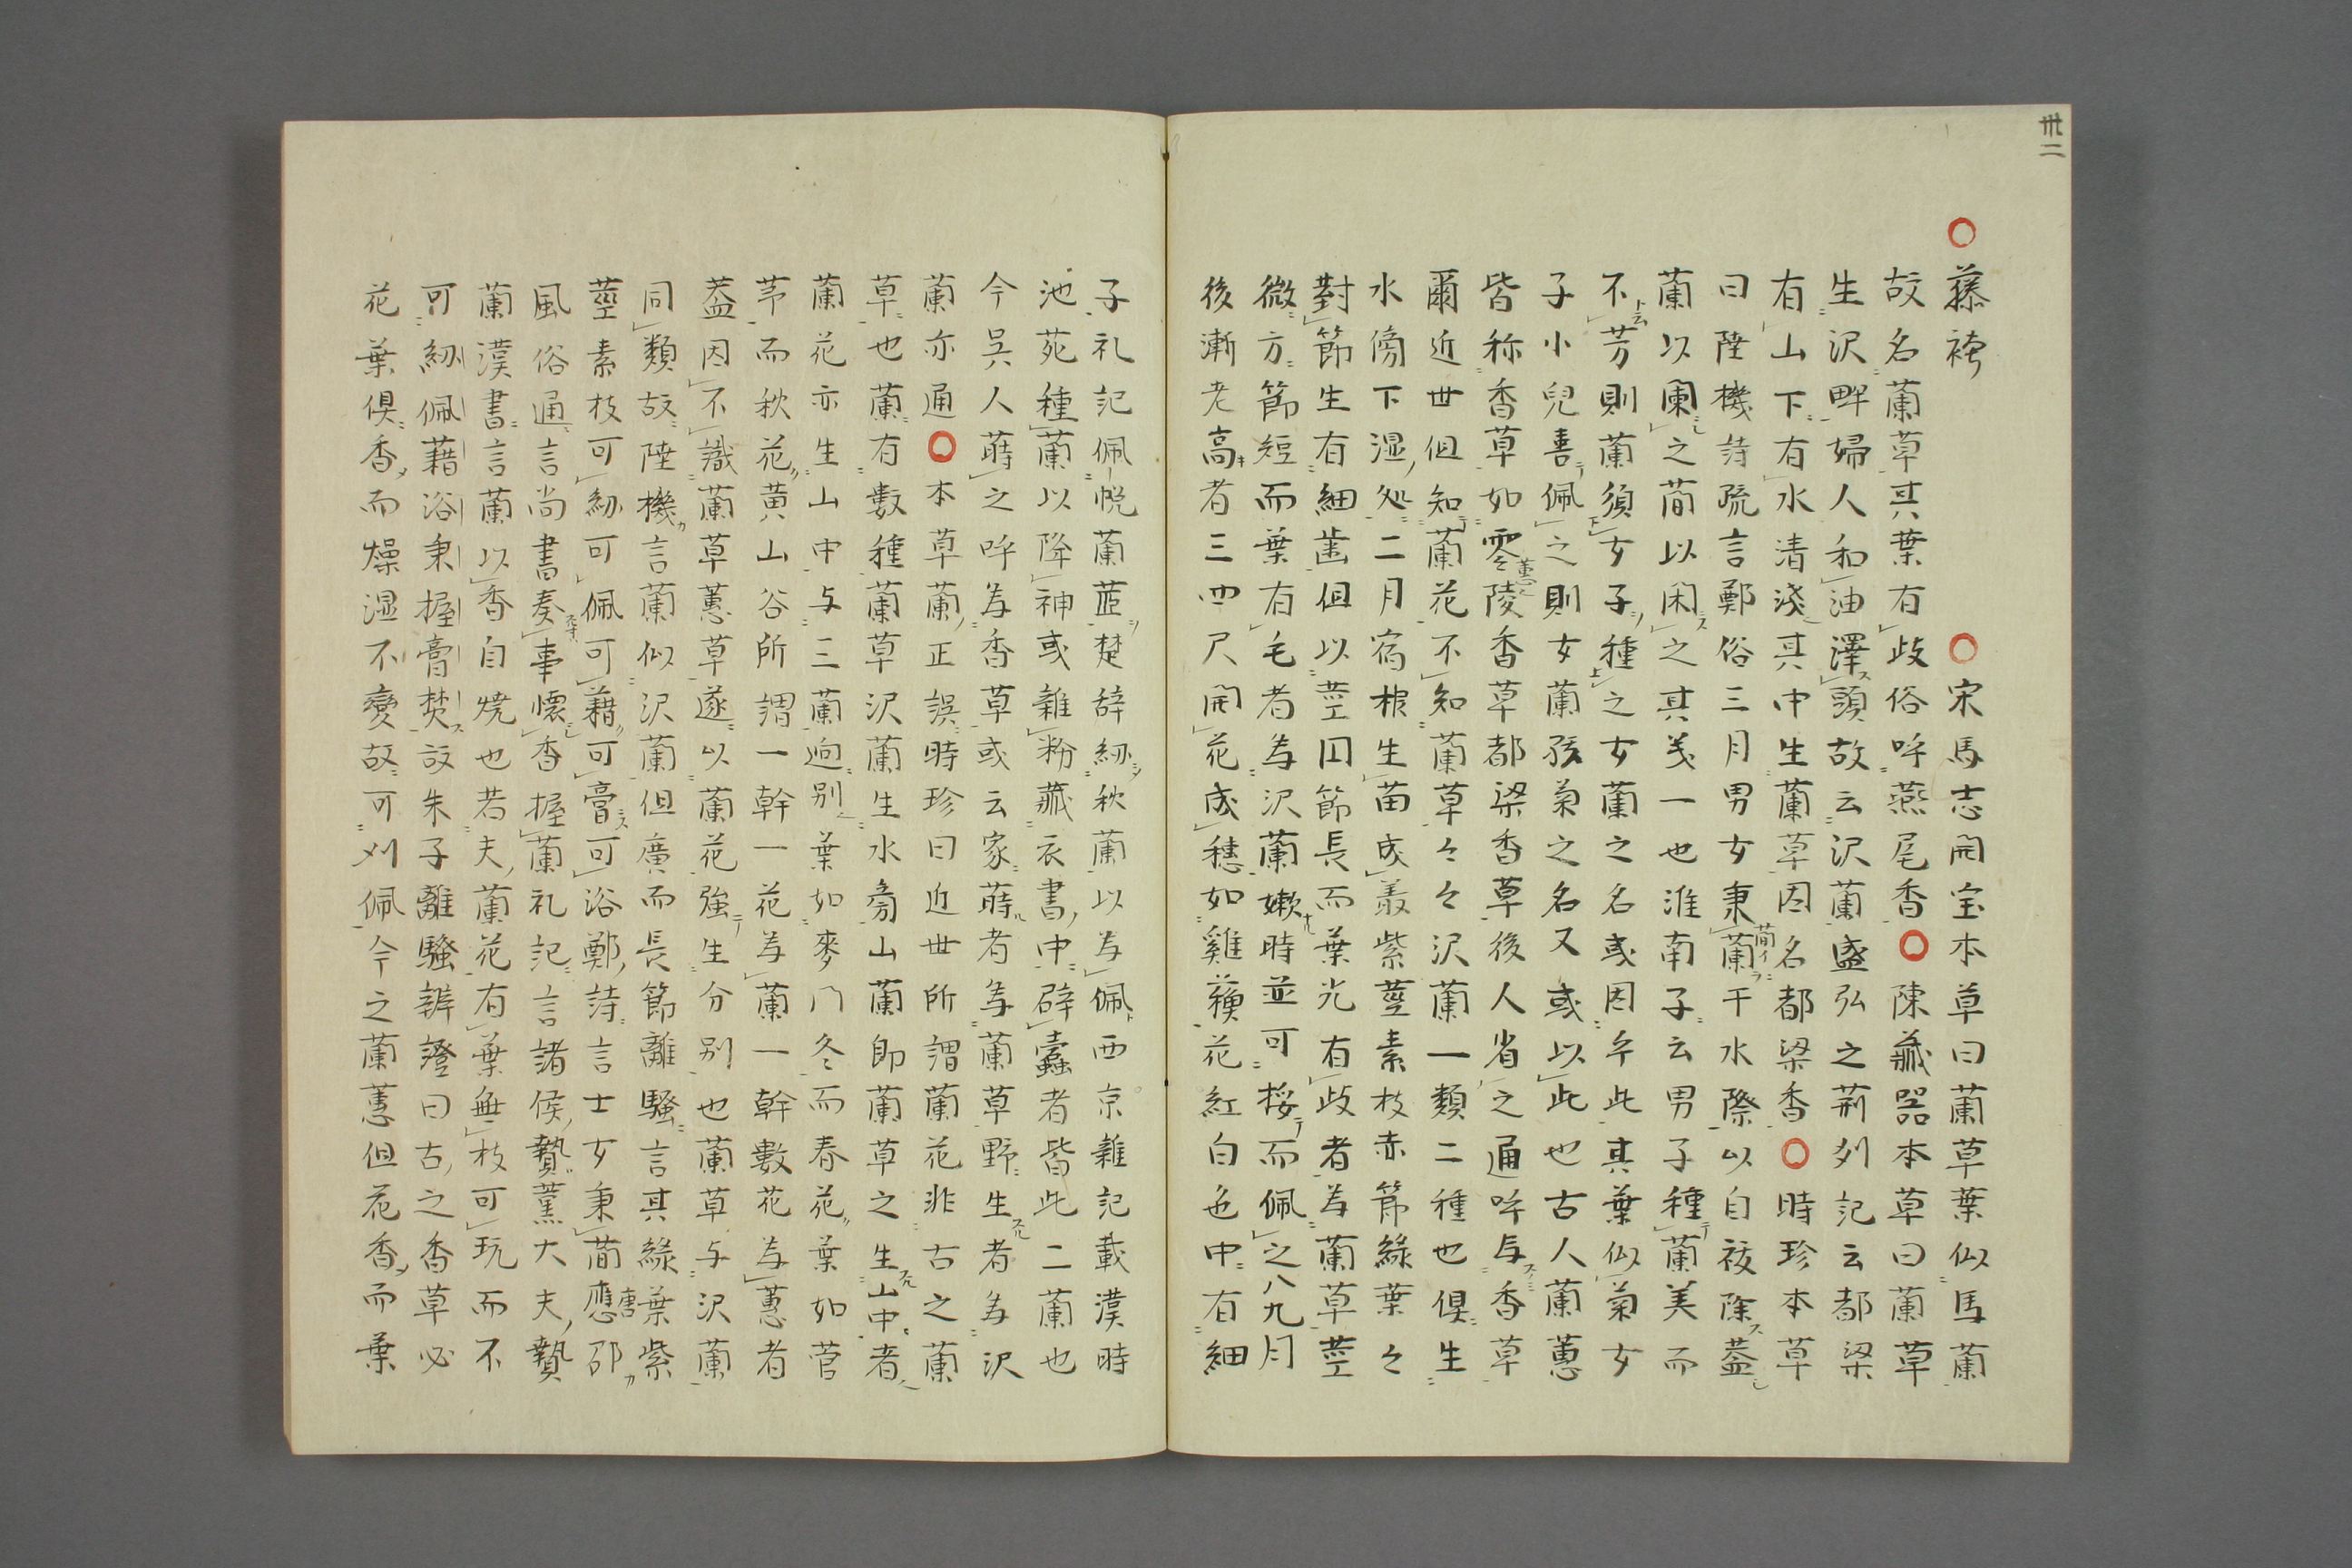 卅二
○藤袴　○宋馬志開宝本草曰蘭草葉似馬蘭
故名蘭草其葉有歧俗呼燕尾香○陳蔵器本草曰蘭草
生沢畔婦人和油澤頭故云沢蘭盛弘之荊列記云都梁
有山下有水清淺其中生蘭草因名都梁香○時珍本草
曰陸機詩疏言鄭俗三月男女秉蘭于水際以自祓除蓋
蘭以闌之蕑以閑之其义一也淮南子云男子種蘭美而
不芳則蘭須女子種之女蘭之名或因乎此其葉似菊女
子小兒喜佩之則女蘭孩菊之名又或以此也古人蘭蕙
皆称香草如零陵香草都梁香草後人省之通呼与香草
爾近世但知蘭花不知蘭草々々沢蘭一類二種也倶生
水傍下湿处二月宿根生苗成叢紫莖素枝赤節緑葉々
對節生有細歯但以莖囙節長而葉光有歧者为蘭草莖
微方節短而葉有毛者为沢蘭嫩時並可挼而佩之八九月
後漸老高者三四尺開花成穗如雞蘓花紅白色中有細
子礼記佩帨蘭茝楚辞紉秋蘭以为佩西京雜記載漢時
池苑種蘭以降神或雜粉蔵衣書中辟蠹者皆此二蘭也
今吴人蒔之呼为香草或云家蒔者为蘭草野生者为沢
蘭亦通○本草蘭正誤時珍曰近世所謂蘭花非古之蘭
草也蘭有數種蘭草沢蘭生水旁山蘭即蘭草之生山中者
蘭花亦生山中与三蘭逈别葉如麥门冬而春花葉如菅
茅而秋花黄山谷所謂一幹一花为蘭一幹數花为蕙者
葢因不識蘭草蕙草遂以蘭花強生分别也蘭草与沢蘭
同類故陸機言蘭似沢蘭但廣而長節離騷言其緑葉紫
莖素枝可紉可佩可藉可膏可浴鄭詩言士女秉蕑應邵
風俗通言尚書奏事懷香握蘭礼記言諸侯贄薰大夫贄
蘭漢書言蘭以香自焼也若夫蘭花有葉無枝可玩而不
可紉佩藉浴秉握膏焚故朱子離騷辨證曰古之香草必
花葉倶香而燥湿不變故可刈佩今之蘭蕙但花香而葉